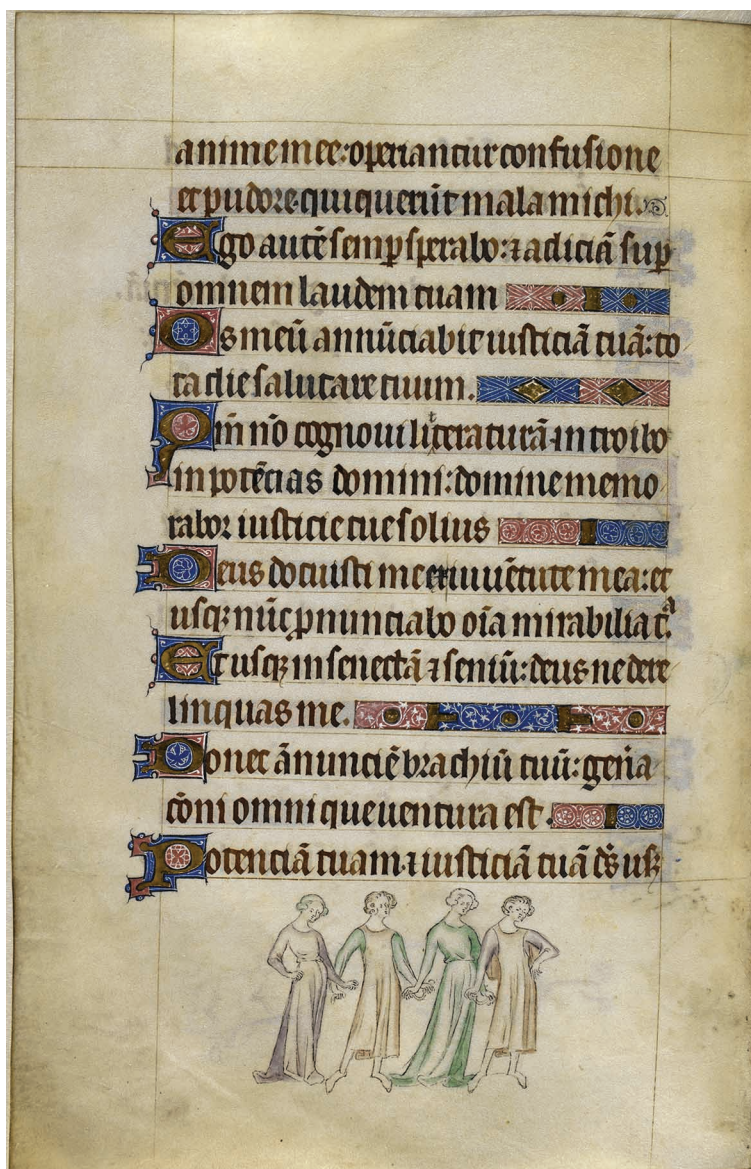 anime mee: operiantur confusione
et pudore qui querūt mala michi.
Ego autē semp sperabo: ⁊ adiciā sup
omnem laudem tuam
Os meū annūciabit iusticiā tuā: to
ta die salutare tuum.
Qm̄ nō cognoui litteraturā introibo
in potēcias domini: domine memo
rabor iusticie tue solius
Deus docuisti me ex iuuētute mea: et
usqꝫ nūc ꝓnunciabo oīa mirabilia tᵃ
Et usqꝫ in senectā ⁊ seniū: deus ne dere
linquas me.
Donec ānunciē brachiū tuū: gen̄a
cōni omni que uentura est.
Potenciā tuam ⁊ iusticiā tuā ds̄ usqꝫ